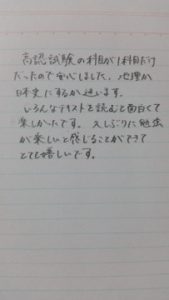 高認試験の科目が1科目だけ
だったので安心しました。地理か
日本史にするか迷います。
いろんなテキストを読むと面白くて
楽しかったです。久しぶりに勉強
が楽しいと感じることができて
とても嬉しいです。